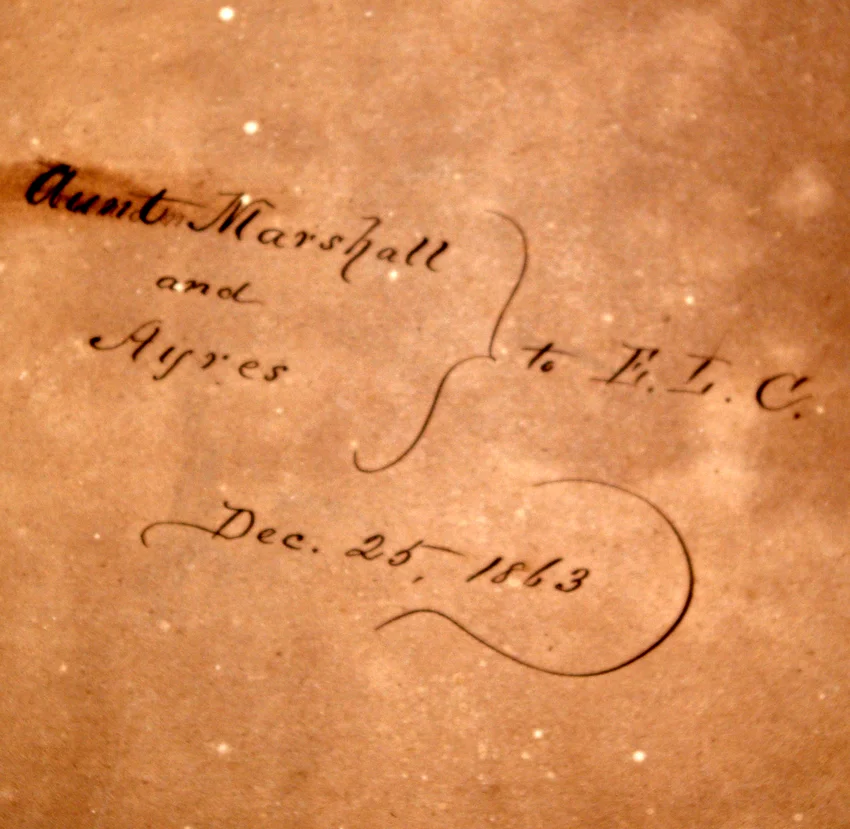 Aunt Marshall
and
Ayres
to E. L. C.
Dec. 25, 1863